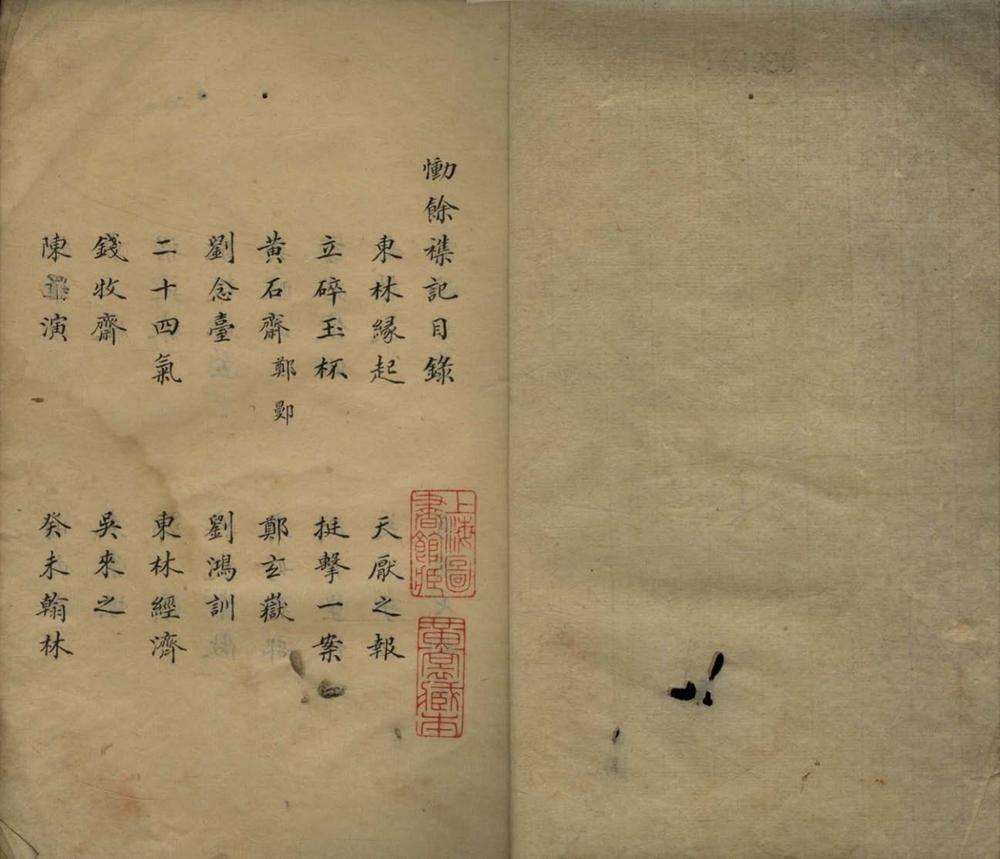 慟餘襍記目錄
東林緣起 天厭之報
立碎玉杯 挺擊一案
黄石齋 鄭鄤 鄭玄嶽
劉念臺 劉鴻訓
二十四氣 東林經濟
錢牧齋 吳來之
陳演 癸未翰林
上海圖書館藏
黄裳藏本